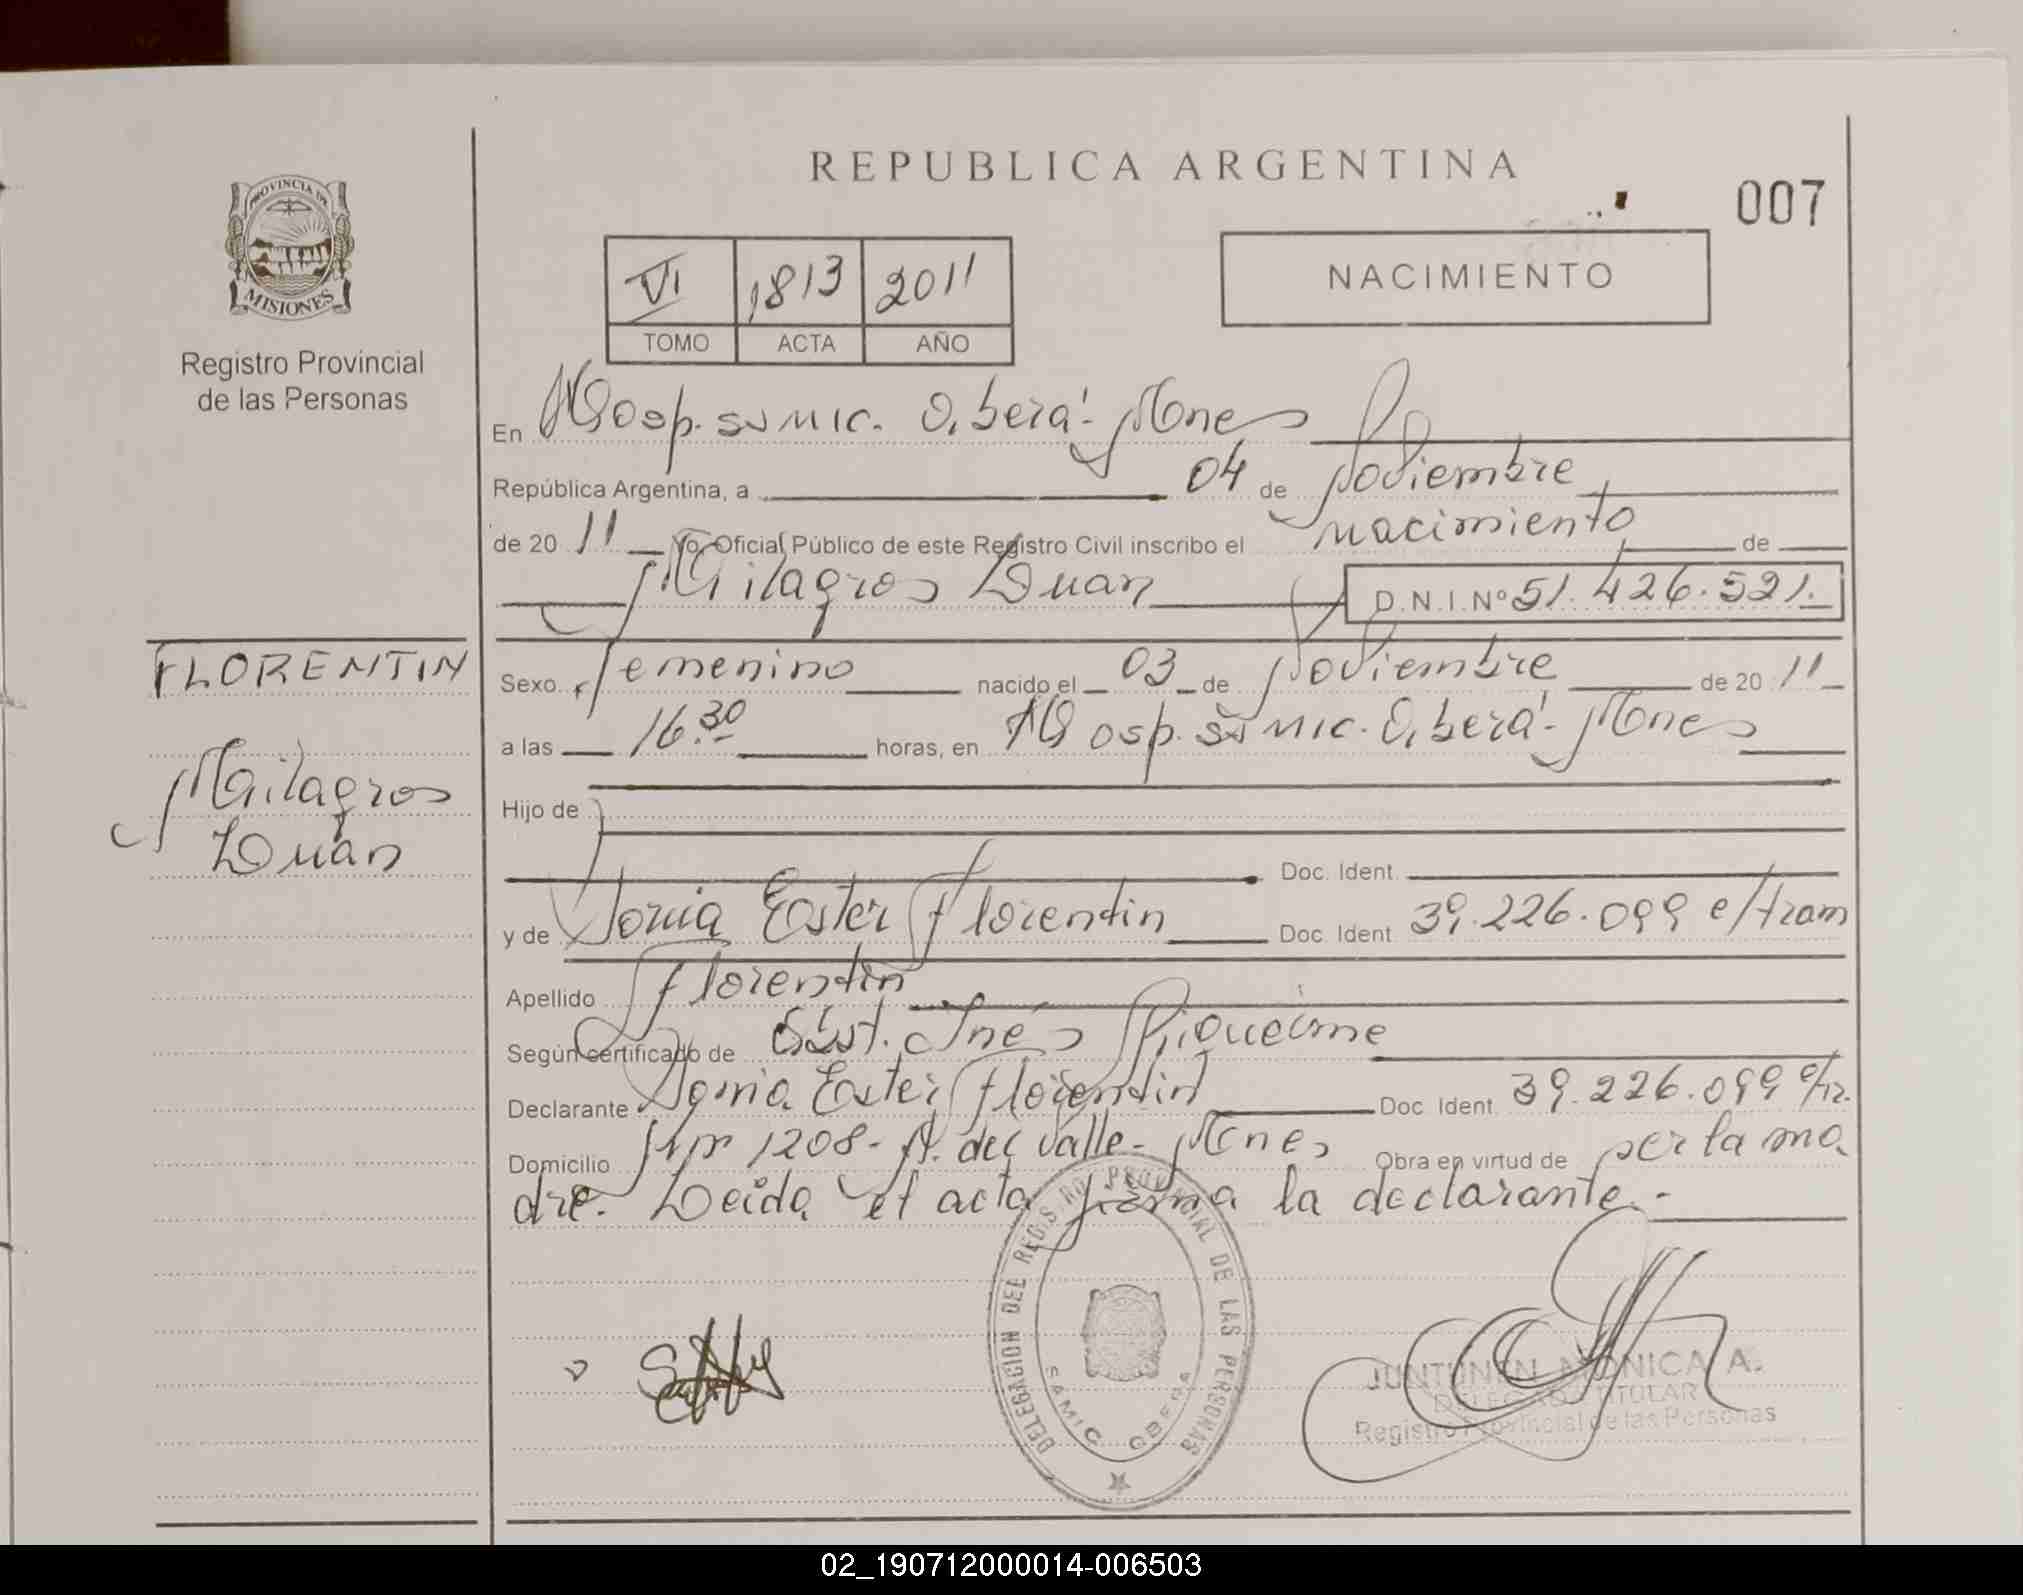 REPUBLICA ARGENTINA
007
PROVINCIA DE
MISIONES
Registro Provincial
de las Personas
VI 1813 2011
TOMO ACTA AÑO
NACIMIENTO
En Hosp. SAMIC. Oberá - Mnes
República Argentina, a 04 de Noviembre
de 20 11 Yo, Oficial Público de este Registro Civil inscribo el nacimiento de
Milagros Luan D.N.I. Nº 51.426.521.
FLORENTIN
Milagros
Luan
Sexo femenino nacido el 03 de Noviembre de 20 11
a las 16.30 horas, en Hosp. SAMIC. Oberá - Mnes
Hijo de
Doc. Ident.
y de Sonia Ester Florentin Doc. Ident. 39.226.099 e/tram
Apellido Florentin
Según certificado de Obst. Inés Riquelme
Declarante Sonia Ester Florentin Doc. Ident. 39.226.099 e/tr.
Domicilio 1208 - A. del Valle - Mnes Obra en virtud de ser la ma
dre. Leida el acta firma la declarante.-
DELEGACION DEL REGIS. RO PROVINCIAL DE LAS PERSONAS
SAMIC OBERA
JUNTUNEN MONICA A.
DELEGADA TITULAR
Registro Provincial de las Personas
02_190712000014-006503